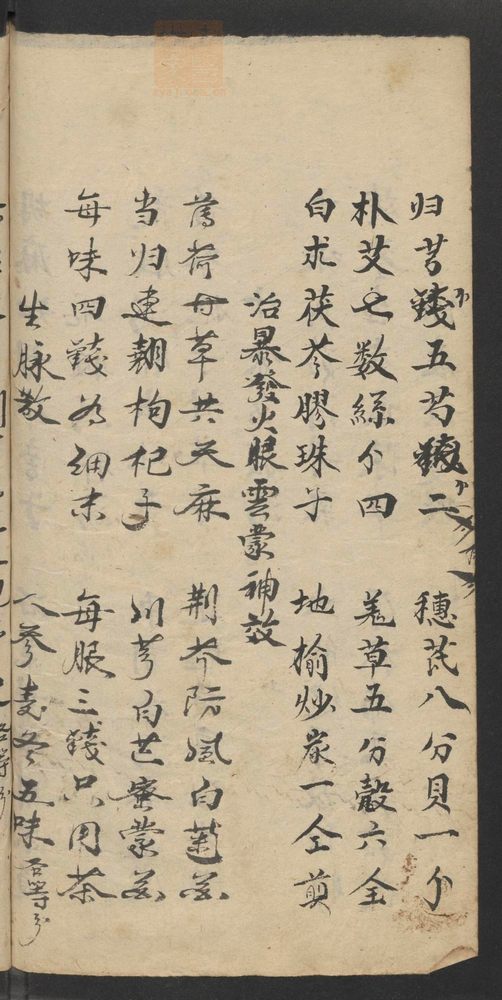 归芎錢五芍錢二 穗芪八分貝一个
朴艾七数絲个四 羌草五分殼六全
白求茯苓膠珠子 地榆炒炭一仝煎
治暴發火眼雲蒙神效
薄荷甘草共天麻 荆芥防風白菊花
当归連翹枸杞子 川芎白芷密蒙花
每味四錢为細末 每服三錢只用茶
生脉散 人參麦冬五味各等分